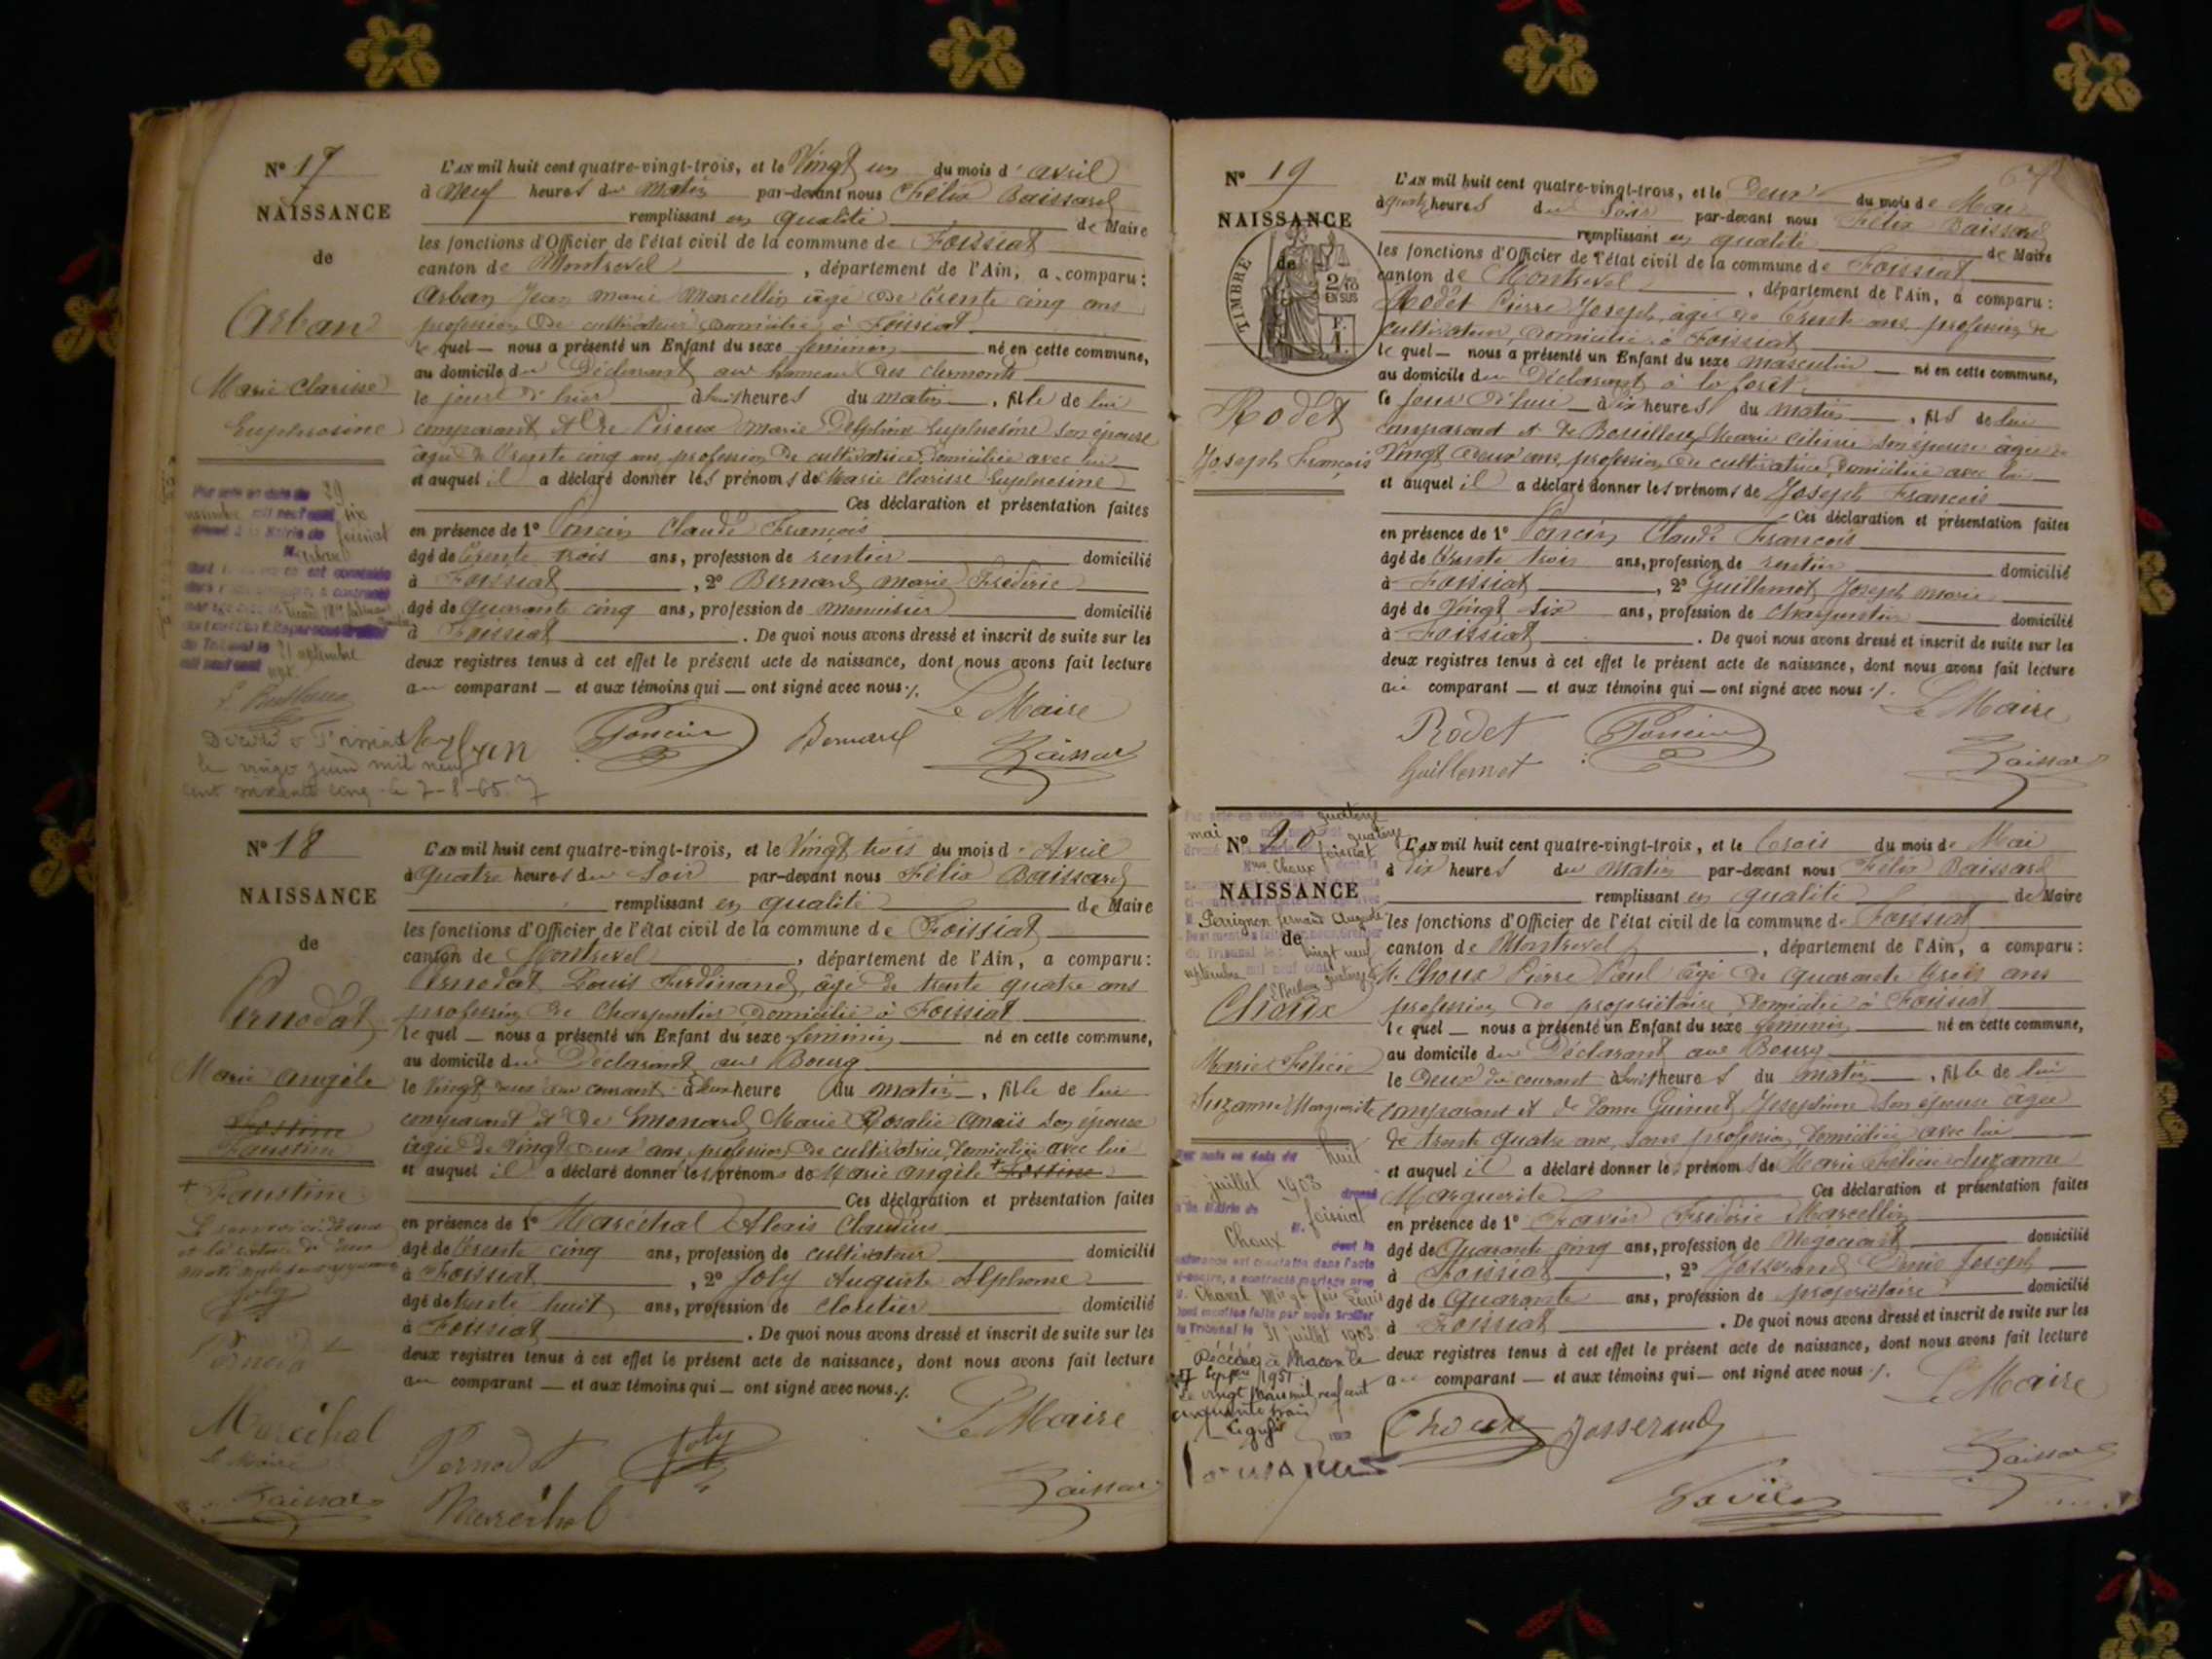 N° 17
NAISSANCE
de
Arban
Marie Clarisse
Euphrosine
L'AN mil huit cent quatre-vingt-trois, et le Vingt un du mois d'avril
à Neuf heures du Matin par-devant nous Félix Baissard
remplissant en qualité de Maire
les fonctions d'Officier de l'état civil de la commune de Foissiat
canton de Montrevel, département de l'Ain, a comparu:
Arban Jean marie Marcellin âgé de trente cinq ans
profession de cultivateur domicilié à Foissiat
le quel nous a présenté un Enfant du sexe feminin né en cette commune,
au domicile du Déclarant au hameau des clermonts
le jour d'hier à huit heures du matin, fille de lui
comparant et de Marie Delphine Euphrosine son épouse
âgée de trente cinq ans, profession de cultivatrice, domiciliée avec lui
et auquel il a déclaré donner les prénoms de Marie Clarisse Euphrosine
Ces déclaration et présentation faites
en présence de 1° Poncin Claude François
âgé de trente trois ans, profession de rentier domicilié
à Foissiat, 2° Bernard marie Fréderic
âgé de quarante cinq ans, profession de menuisier domicilié
à Foissiat. De quoi nous avons dressé et inscrit de suite sur les
deux registres tenus à cet effet le présent acte de naissance, dont nous avons fait lecture
au comparant et aux témoins qui ont signé avec nous ./.
Le Maire
Arban Poncin Bernard Baissard
le vingt juin mil neuf
cent soixante cinq le 7-8-65
N° 18
NAISSANCE
de
Pernodat
Marie Angèle
Faustine
+ Faustine
Joly
Pernodat
Maréchal
Le Maire
Baissard
L'AN mil huit cent quatre-vingt-trois, et le Vingt trois du mois d'Avril
à quatre heures du Soir par-devant nous Félix Baissard
remplissant en qualité de Maire
les fonctions d'Officier de l'état civil de la commune de Foissiat
canton de Montrevel, département de l'Ain, a comparu:
Pernodat Louis Ferdinand, âgé de trente quatre ans
profession de Charpentier domicilié à Foissiat
le quel nous a présenté un Enfant du sexe feminin né en cette commune,
au domicile du Déclarant au Bourg
le Vingt deux du courant à deux heure du matin, fille de lui
comparant et de Emonard Marie Rosalie Anaïs son épouse
âgée de vingt deux ans profession de cultivatrice, domiciliée avec lui
et auquel il a déclaré donner les prénoms de Marie Angèle +
Ces déclaration et présentation faites
en présence de 1° Maréchal Alexis Claudius
âgé de trente cinq ans, profession de cultivateur domicilié
à Foissiat, 2° Joly Auguste Alphonse
âgé de trente huit ans, profession de cloutier domicilié
à Foissiat. De quoi nous avons dressé et inscrit de suite sur les
deux registres tenus à cet effet le présent acte de naissance, dont nous avons fait lecture
au comparant et aux témoins qui ont signé avec nous ./.
Le Maire
Pernodat Joly Baissard
Maréchal
N° 19
NAISSANCE
de
TIMBRE
2/10
EN SUS
Rodet
Joseph François
L'AN mil huit cent quatre-vingt-trois, et le deux du mois de Mai
à quatre heures du Soir par-devant nous Félix Baissard
remplissant en qualité de Maire
les fonctions d'Officier de l'état civil de la commune de Foissiat
canton de Montrevel, département de l'Ain, a comparu:
Rodet Pierre Joseph, âgé de trente ans, profession de
cultivateur, domicilié à Foissiat
le quel nous a présenté un Enfant du sexe masculin né en cette commune,
au domicile du Déclarant à la foret
ce jour d'hui à dix heures du matin, fils de lui
comparant et de Marie son épouse âgée de
Vingt deux ans, profession de cultivatrice, domiciliée avec lui
et auquel il a déclaré donner les prénoms de Joseph François
Ces déclaration et présentation faites
en présence de 1° Poncin Claude François
âgé de trente trois ans, profession de rentier domicilié
à Foissiat, 2° Guillemot Joseph marie
âgé de Vingt six ans, profession de charpentier domicilié
à Foissiat. De quoi nous avons dressé et inscrit de suite sur les
deux registres tenus à cet effet le présent acte de naissance, dont nous avons fait lecture
au comparant et aux témoins qui ont signé avec nous ./.
Le Maire
Rodet Poncin
Guillemot Baissard
N° 20
NAISSANCE
de
Perrignon Fernand Auguste
Choux
Marie Félicie
Suzanne Marguerite
huit
juillet 1903
Foissiat
Choux
31 juillet 1903
Décédée à Macon le
L'AN mil huit cent quatre-vingt-trois, et le trois du mois de Mai
à dix heures du Matin par-devant nous Félix Baissard
remplissant en qualité de Maire
les fonctions d'Officier de l'état civil de la commune de Foissiat
canton de Montrevel, département de l'Ain, a comparu:
M. Choux Pierre Paul âgé de quarante trois ans
profession de propriétaire domicilié à Foissiat
le quel nous a présenté un Enfant du sexe feminin né en cette commune,
au domicile du Déclarant au Bourg
le deux du courant à huit heures du matin, fille de lui
comparant et de dame Guinet Joséphine son épouse âgée
de trente quatre ans, sans profession, domiciliée avec lui
et auquel il a déclaré donner les prénoms de Marie Félicie Suzanne
Marguerite Ces déclaration et présentation faites
en présence de 1° Favier Fréderic Marcellin
âgé de quarante cinq ans, profession de Négociant domicilié
à Foissiat, 2° Josserand Denis Joseph
âgé de Quarante ans, profession de propriétaire domicilié
à Foissiat. De quoi nous avons dressé et inscrit de suite sur les
deux registres tenus à cet effet le présent acte de naissance, dont nous avons fait lecture
au comparant et aux témoins qui ont signé avec nous ./.
Le Maire
Choux Josserand
Favier Baissard